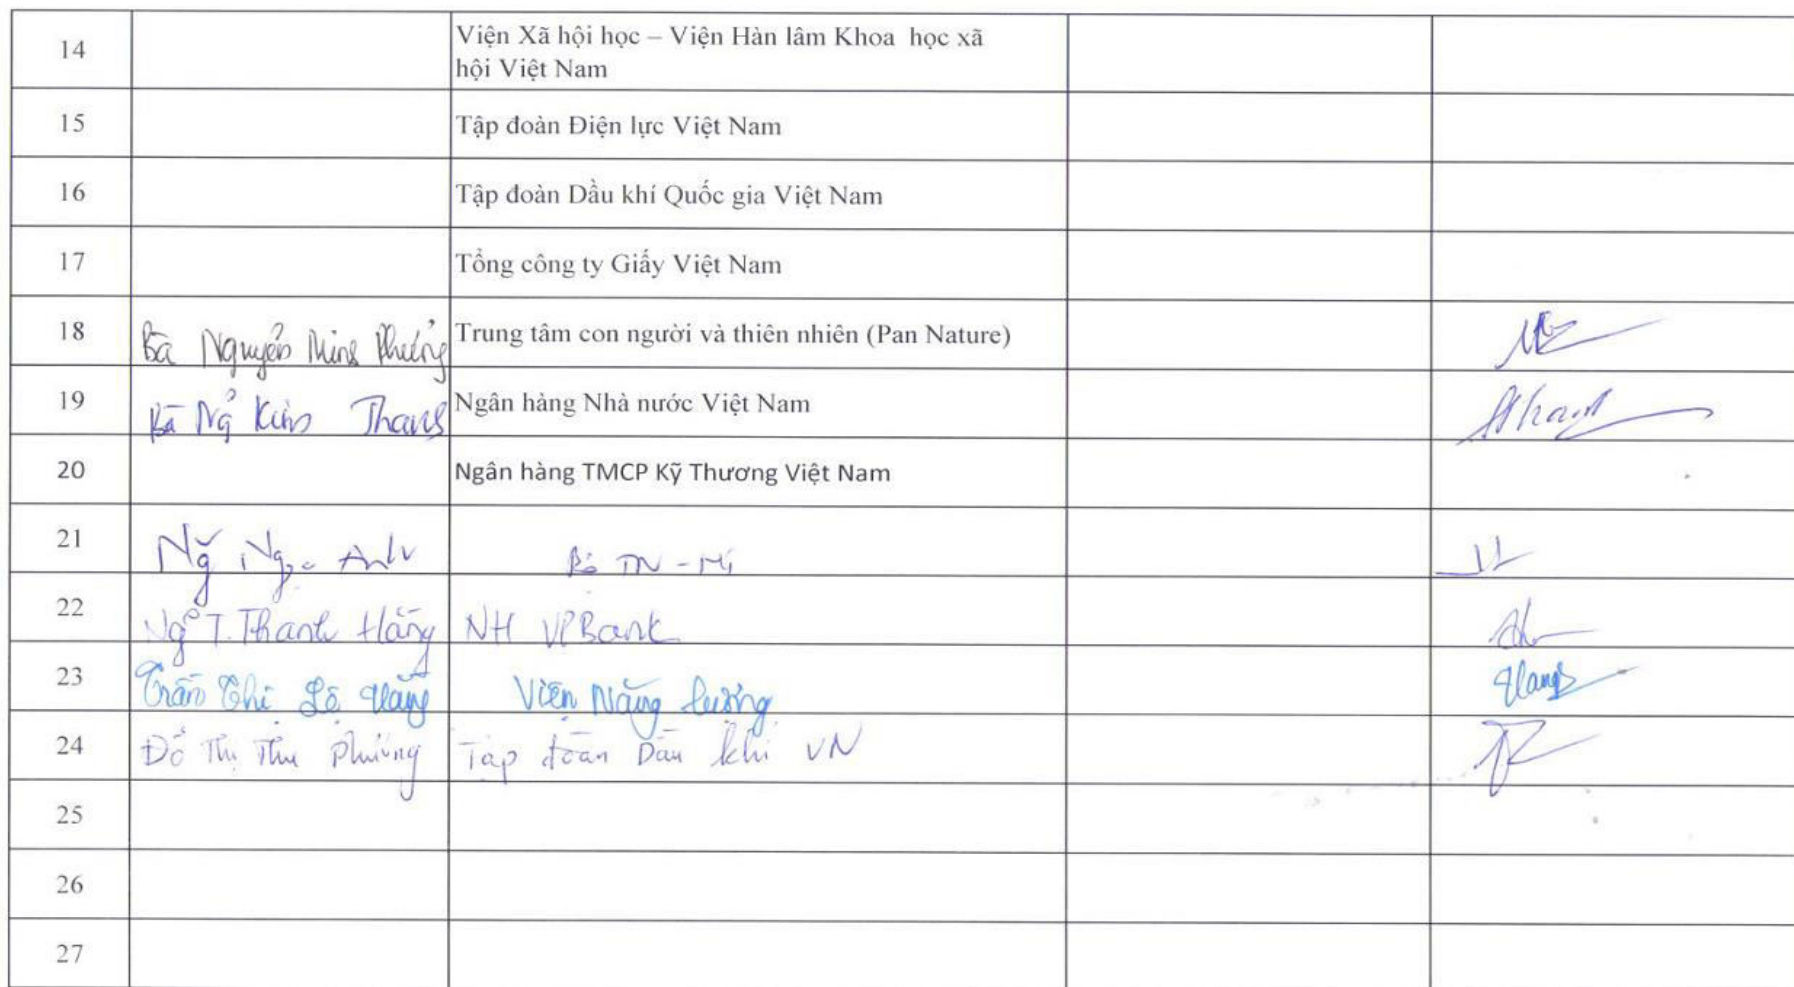 14 Viện Xã hội học – Viện Hàn lâm Khoa học xã
hội Việt Nam
15 Tập đoàn Điện lực Việt Nam
16 Tập đoàn Dầu khí Quốc gia Việt Nam
17 Tổng công ty Giấy Việt Nam
18 Bà Nguyễn Minh Phương Trung tâm con người và thiên nhiên (Pan Nature)
19 Bà Kim Ngân hàng Nhà nước Việt Nam
20 Ngân hàng TMCP Kỹ Thương Việt Nam
21 Anh Bộ TN - MT
22 T. Thanh Hằng NH VPBank
23 Trần Thị Viện Năng lượng
24 Đỗ Thị Thu Phương Tập đoàn Dầu khí VN
25
26
27